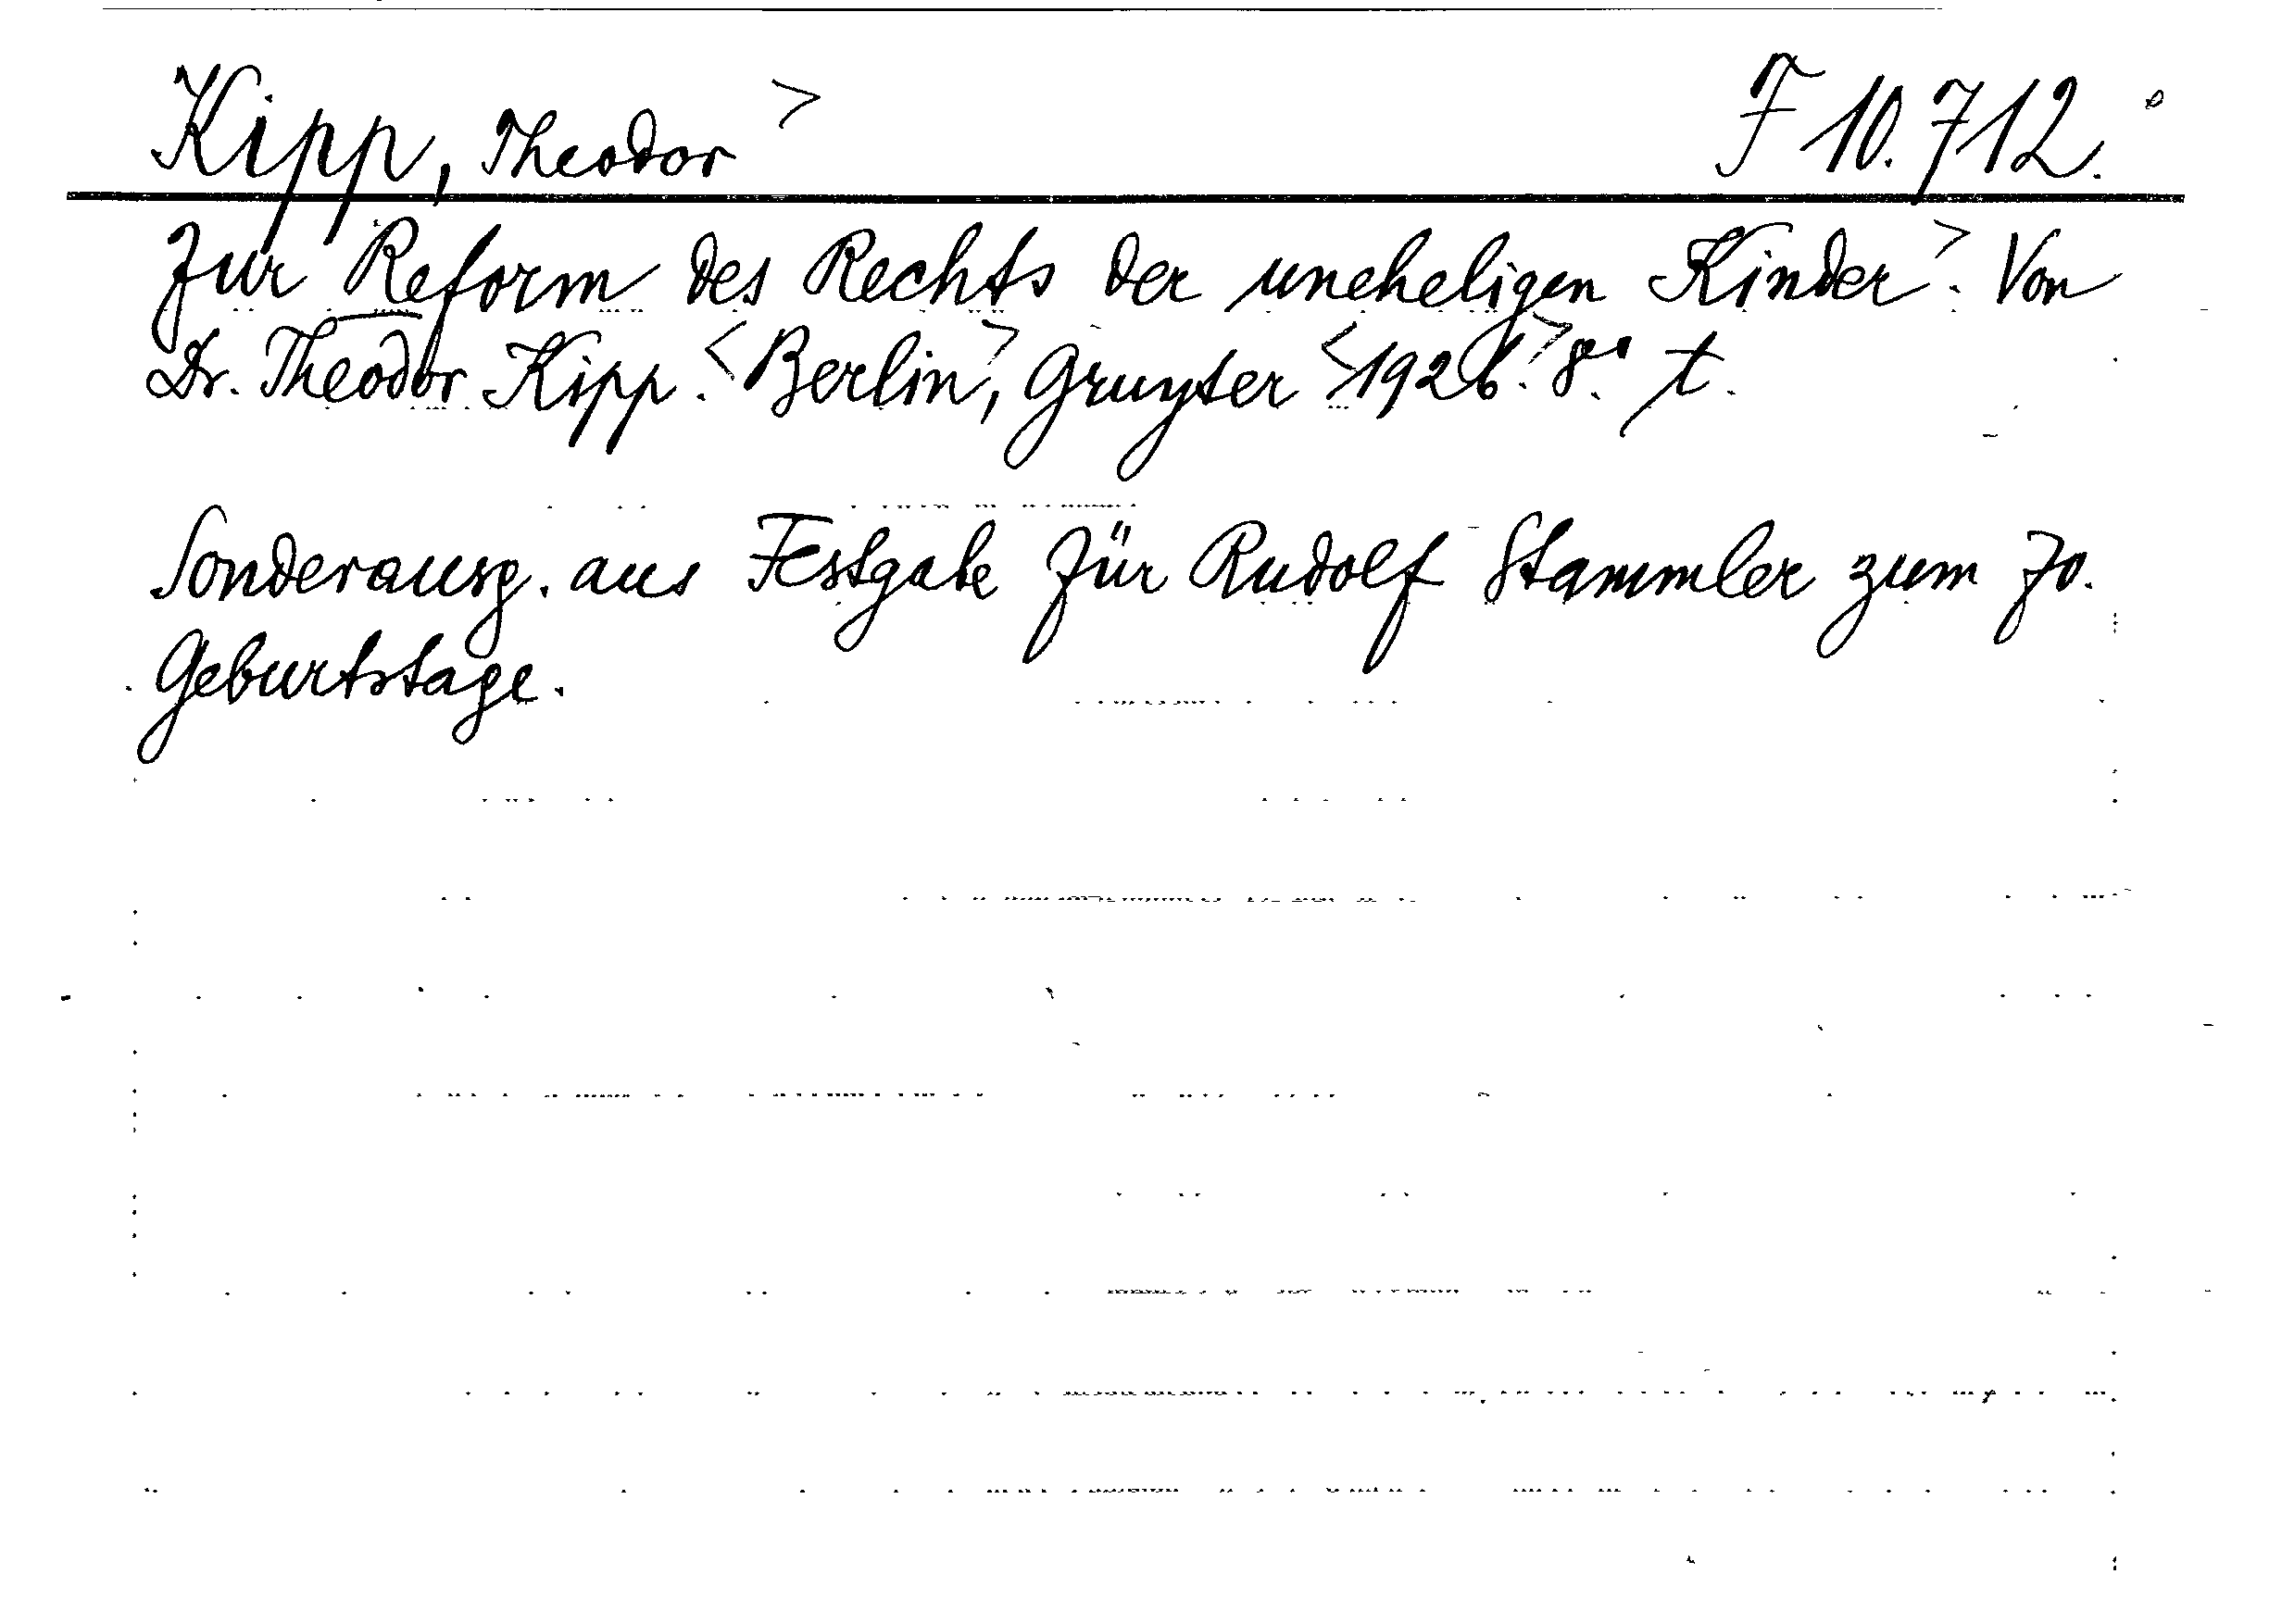 Kipp, Theodor> F 10.712.
Zur Reform des Rechts der uneheligen Kinder>. Von
Dr. Theodor Kipp. <Berlin>, Gruyter <1926.> 8° t.
Sonderausg. aus Festgabe für Rudolf Stammler zum 70.
Geburtstage.